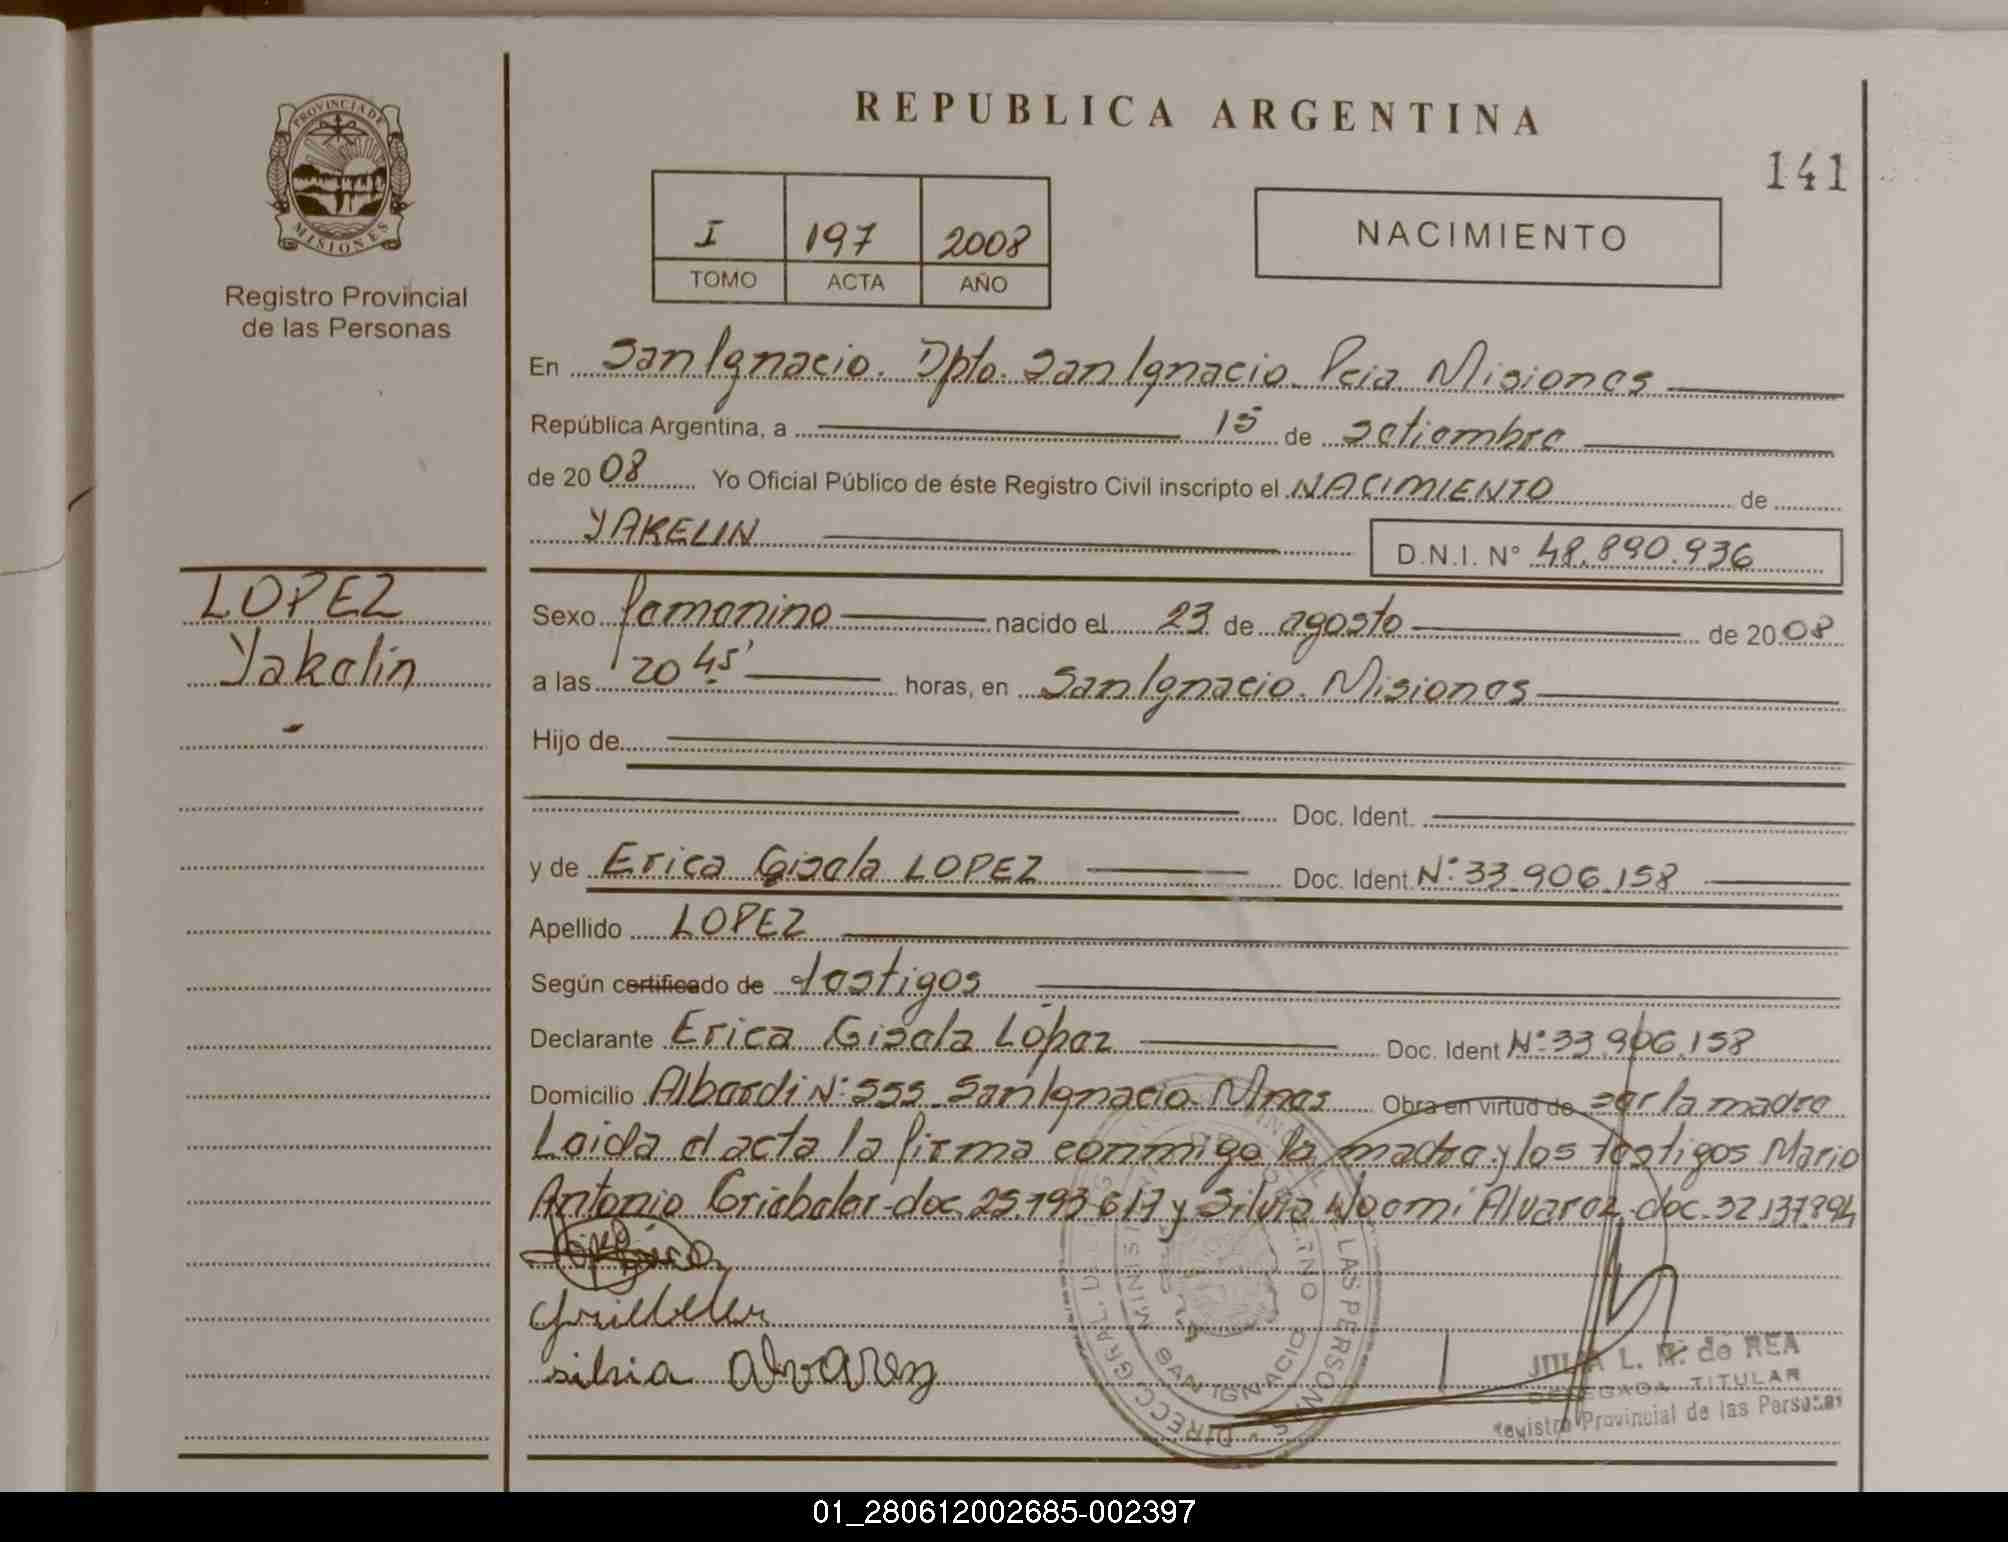 REPUBLICA ARGENTINA
141
PROVINCIA DE
MISIONES
Registro Provincial
de las Personas
I 197 2008
TOMO ACTA AÑO
NACIMIENTO
En San Ignacio. Dpto. San Ignacio. Pcia Misiones
República Argentina, a 15 de setiembre
de 2008 Yo Oficial Público de éste Registro Civil inscripto el NACIMIENTO de
YAKELIN D.N.I. N° 48.890.936
LOPEZ
Yakelin
Sexo femenino nacido el 23 de agosto de 2008
a las 20 45' horas, en San Ignacio. Misiones
Hijo de
Doc. Ident.
y de Erica Gisela LOPEZ Doc. Ident. N°: 33.906.158
Apellido LOPEZ
Según certificado de testigos
Declarante Erica Gisela López Doc. Ident N°: 33.906.158
Domicilio Alberdi N°: 555. San Ignacio. Mnes Obra en virtud de ser la madre
Leida el acta la firma conmigo la madre y los testigos Mario
Antonio Griebeler doc. 25.193.617 y Silvia Noemi Alvarez. doc. 32.137.894
Griebeler
silvia alvarez
DIRECC. GRAL. DE LAS PERSONAS
SAN IGNACIO
JULIA L. M. de REA
DELEGADA TITULAR
Registro Provincial de las Personas
01_280612002685-002397